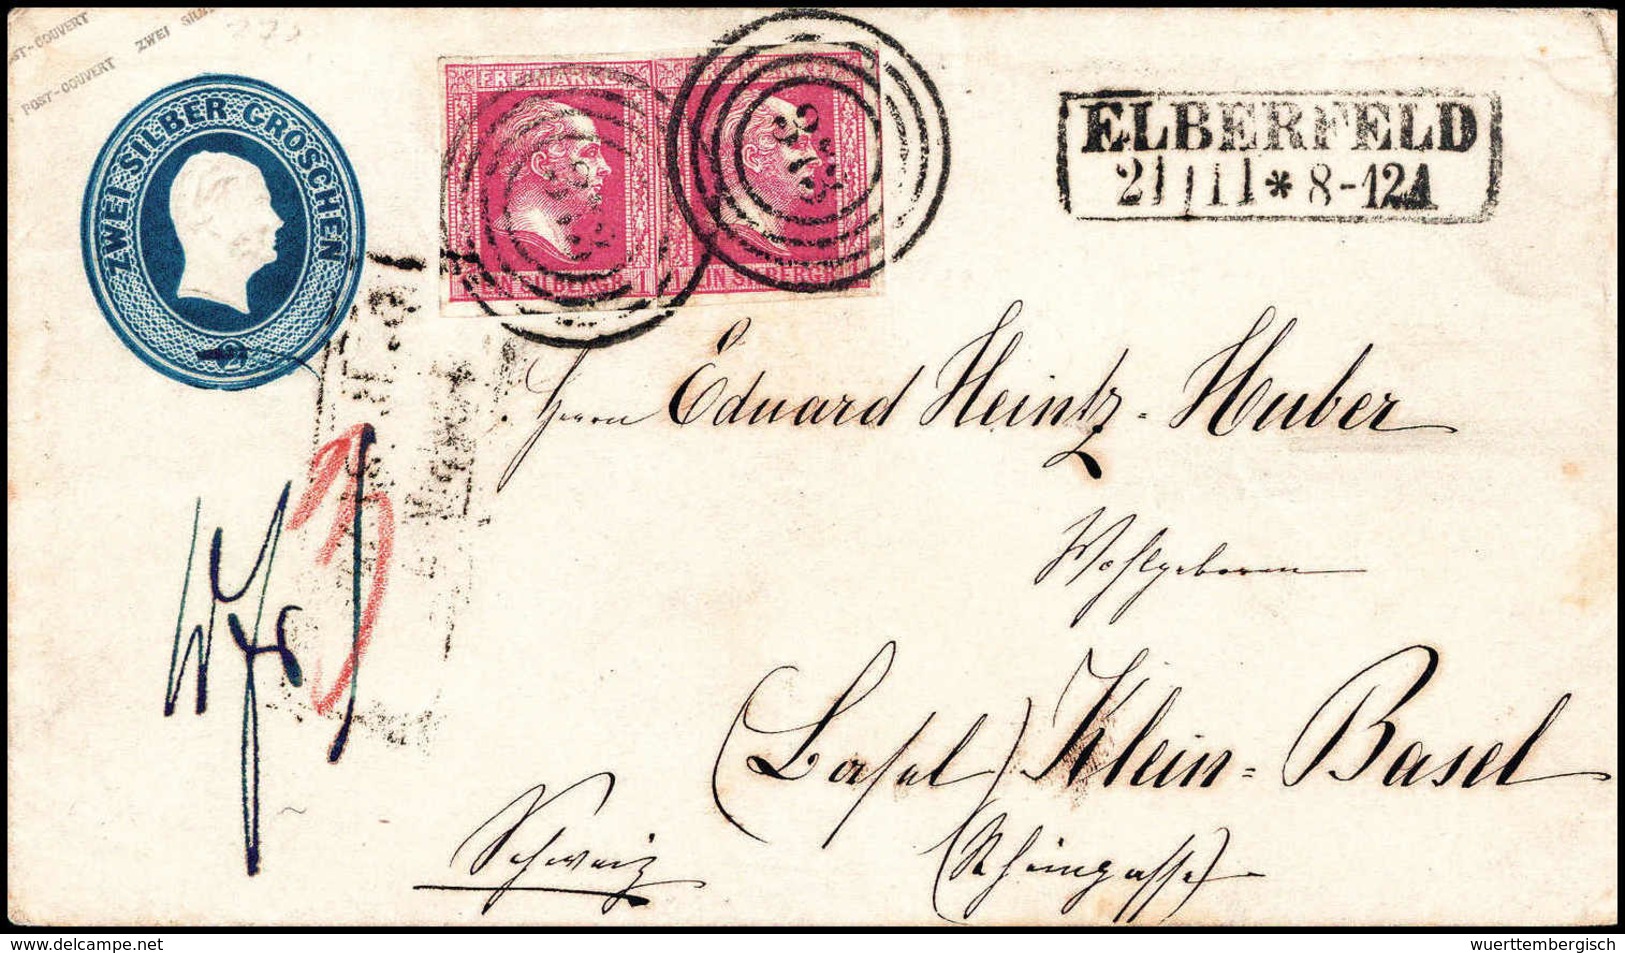 POST-COUVERT ZWEI SILB
POST-COUVERT
ZWEI SILBER GROSCHEN
2
FREIMARKE
EIN SILBERGR.
1
1
EIN SILBERGR.
ELBERFELD
21 11 * 8-12A
Herrn Eduard Heintz-Huber
Wohlgeboren
(Basel) Klein-Basel
Schweiz (Rheingasse)
3
© www.delcampe.net
wuerttembergisch